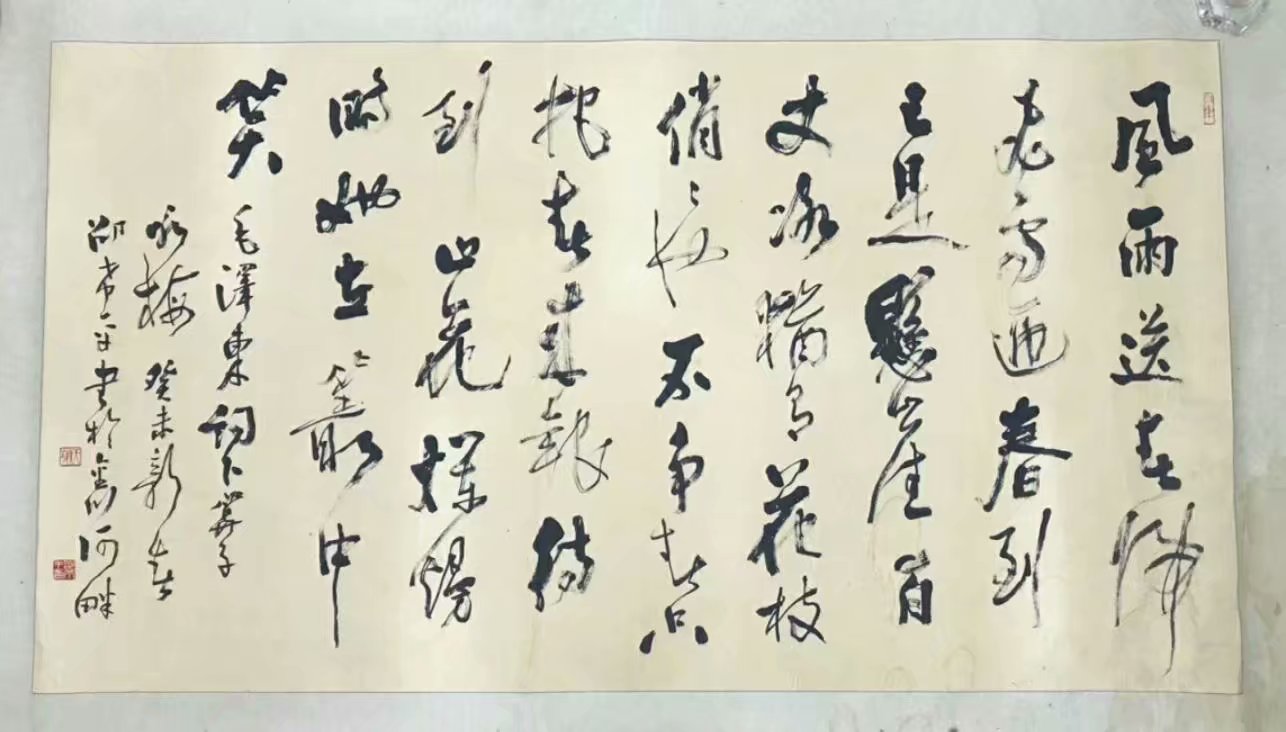 風雨送春歸
飛雪迎春到
已是懸崖百
丈冰猶有花枝
俏〻也不争春只
把春來報待
到山花爛熳
時她在叢中
笑 毛澤東詞卜算子
咏梅 癸未新春
邵 平書於 河畔